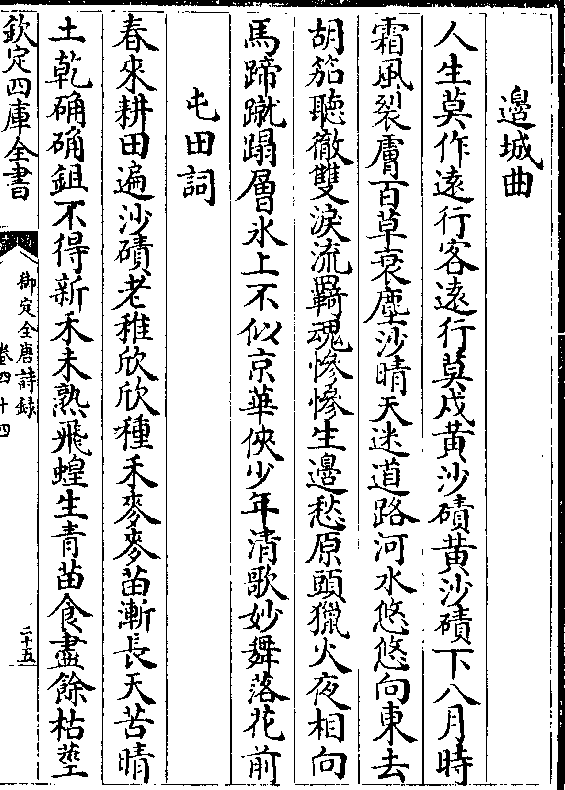 邉城曲
人生莫作逺行客逺行莫戍黄沙磧黄沙磧下八月時
霜風裂膚百草衰塵沙晴天迷道路河水悠悠向東去
胡笳聽徹雙淚流羇魂慘慘生邉愁原頭獵火夜相向
馬蹄蹴蹋層氷上不似京華俠少年清歌妙舞落花前
屯田詞
春來耕田遍沙磧老稚欣欣種禾麥麥苗漸長天苦晴
土乾确确鉏不得新禾未熟飛蝗生青苗食盡餘枯莖
欽定四庫全書
御定全唐詩録
卷四十四
二十五